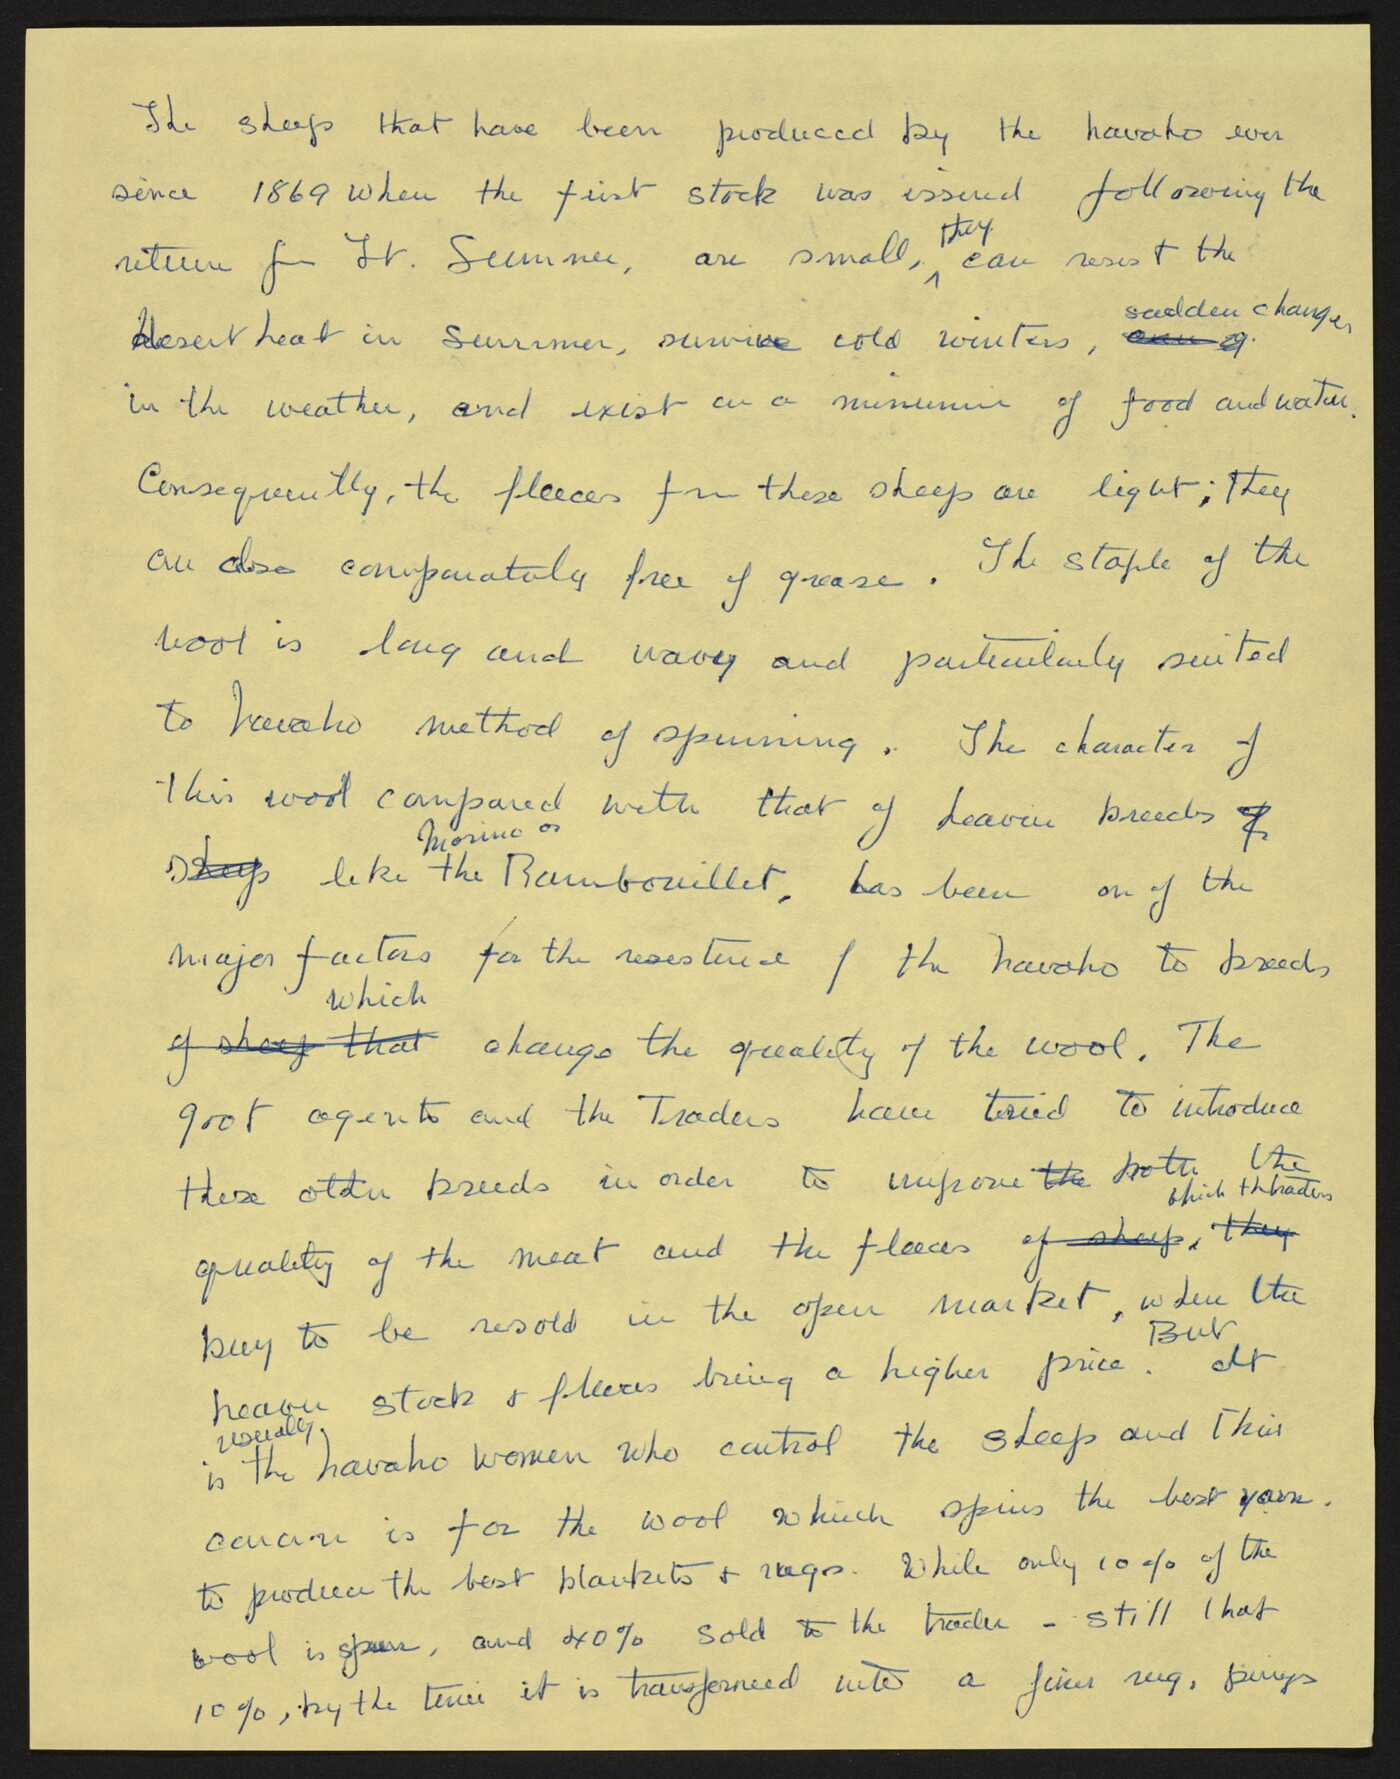 The sheep that have been produced by the navaho ever
since 1869 when the first stock was issued following the
return fm Ft. Sumner, are small, they can resist the
desert heat in Summer, survive cold winters, sudden changes
in the weather, and exist on a minimum of food and water.
Consequently, the fleeces fm these sheep are light; they
are also comparatively free of grease. The staple of the
wool is long and wavy and particularly suited
to navaho method of spinning. The character of
this wool compared with that of heavier breeds of
sheep like the Merino or Rambouillet, has been on of the
major factors for the resistence of the navaho to breeds
of sheep that which change the quality of the wool. The
govt agents and the Traders have tried to introduce
these other breeds in order to improve the both the
quality of the meat and the fleeces of sheep, they which the traders
buy to be resold in the open market, when the
heavier stock & fleeces bring a higher price. But it
is usually the navaho women who control the sheep and their
concern is for the wool which spins the best yarn.
to produce the best blankets & rugs. While only 10% of the
wool is spun, and 40% sold to the trader - still that
10%, by the time it is transformed into a finer rug, brings